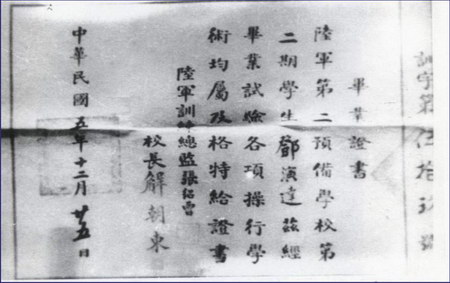 訓字第伍拾玖號
畢業證書
陸軍第二預備學校第
二期學生鄧演達茲經
畢業試驗各項操行學
術均屬及格特給證書
陸軍訓練總監張紹曾
校長解朝東
中華民國五年十二月廿五日